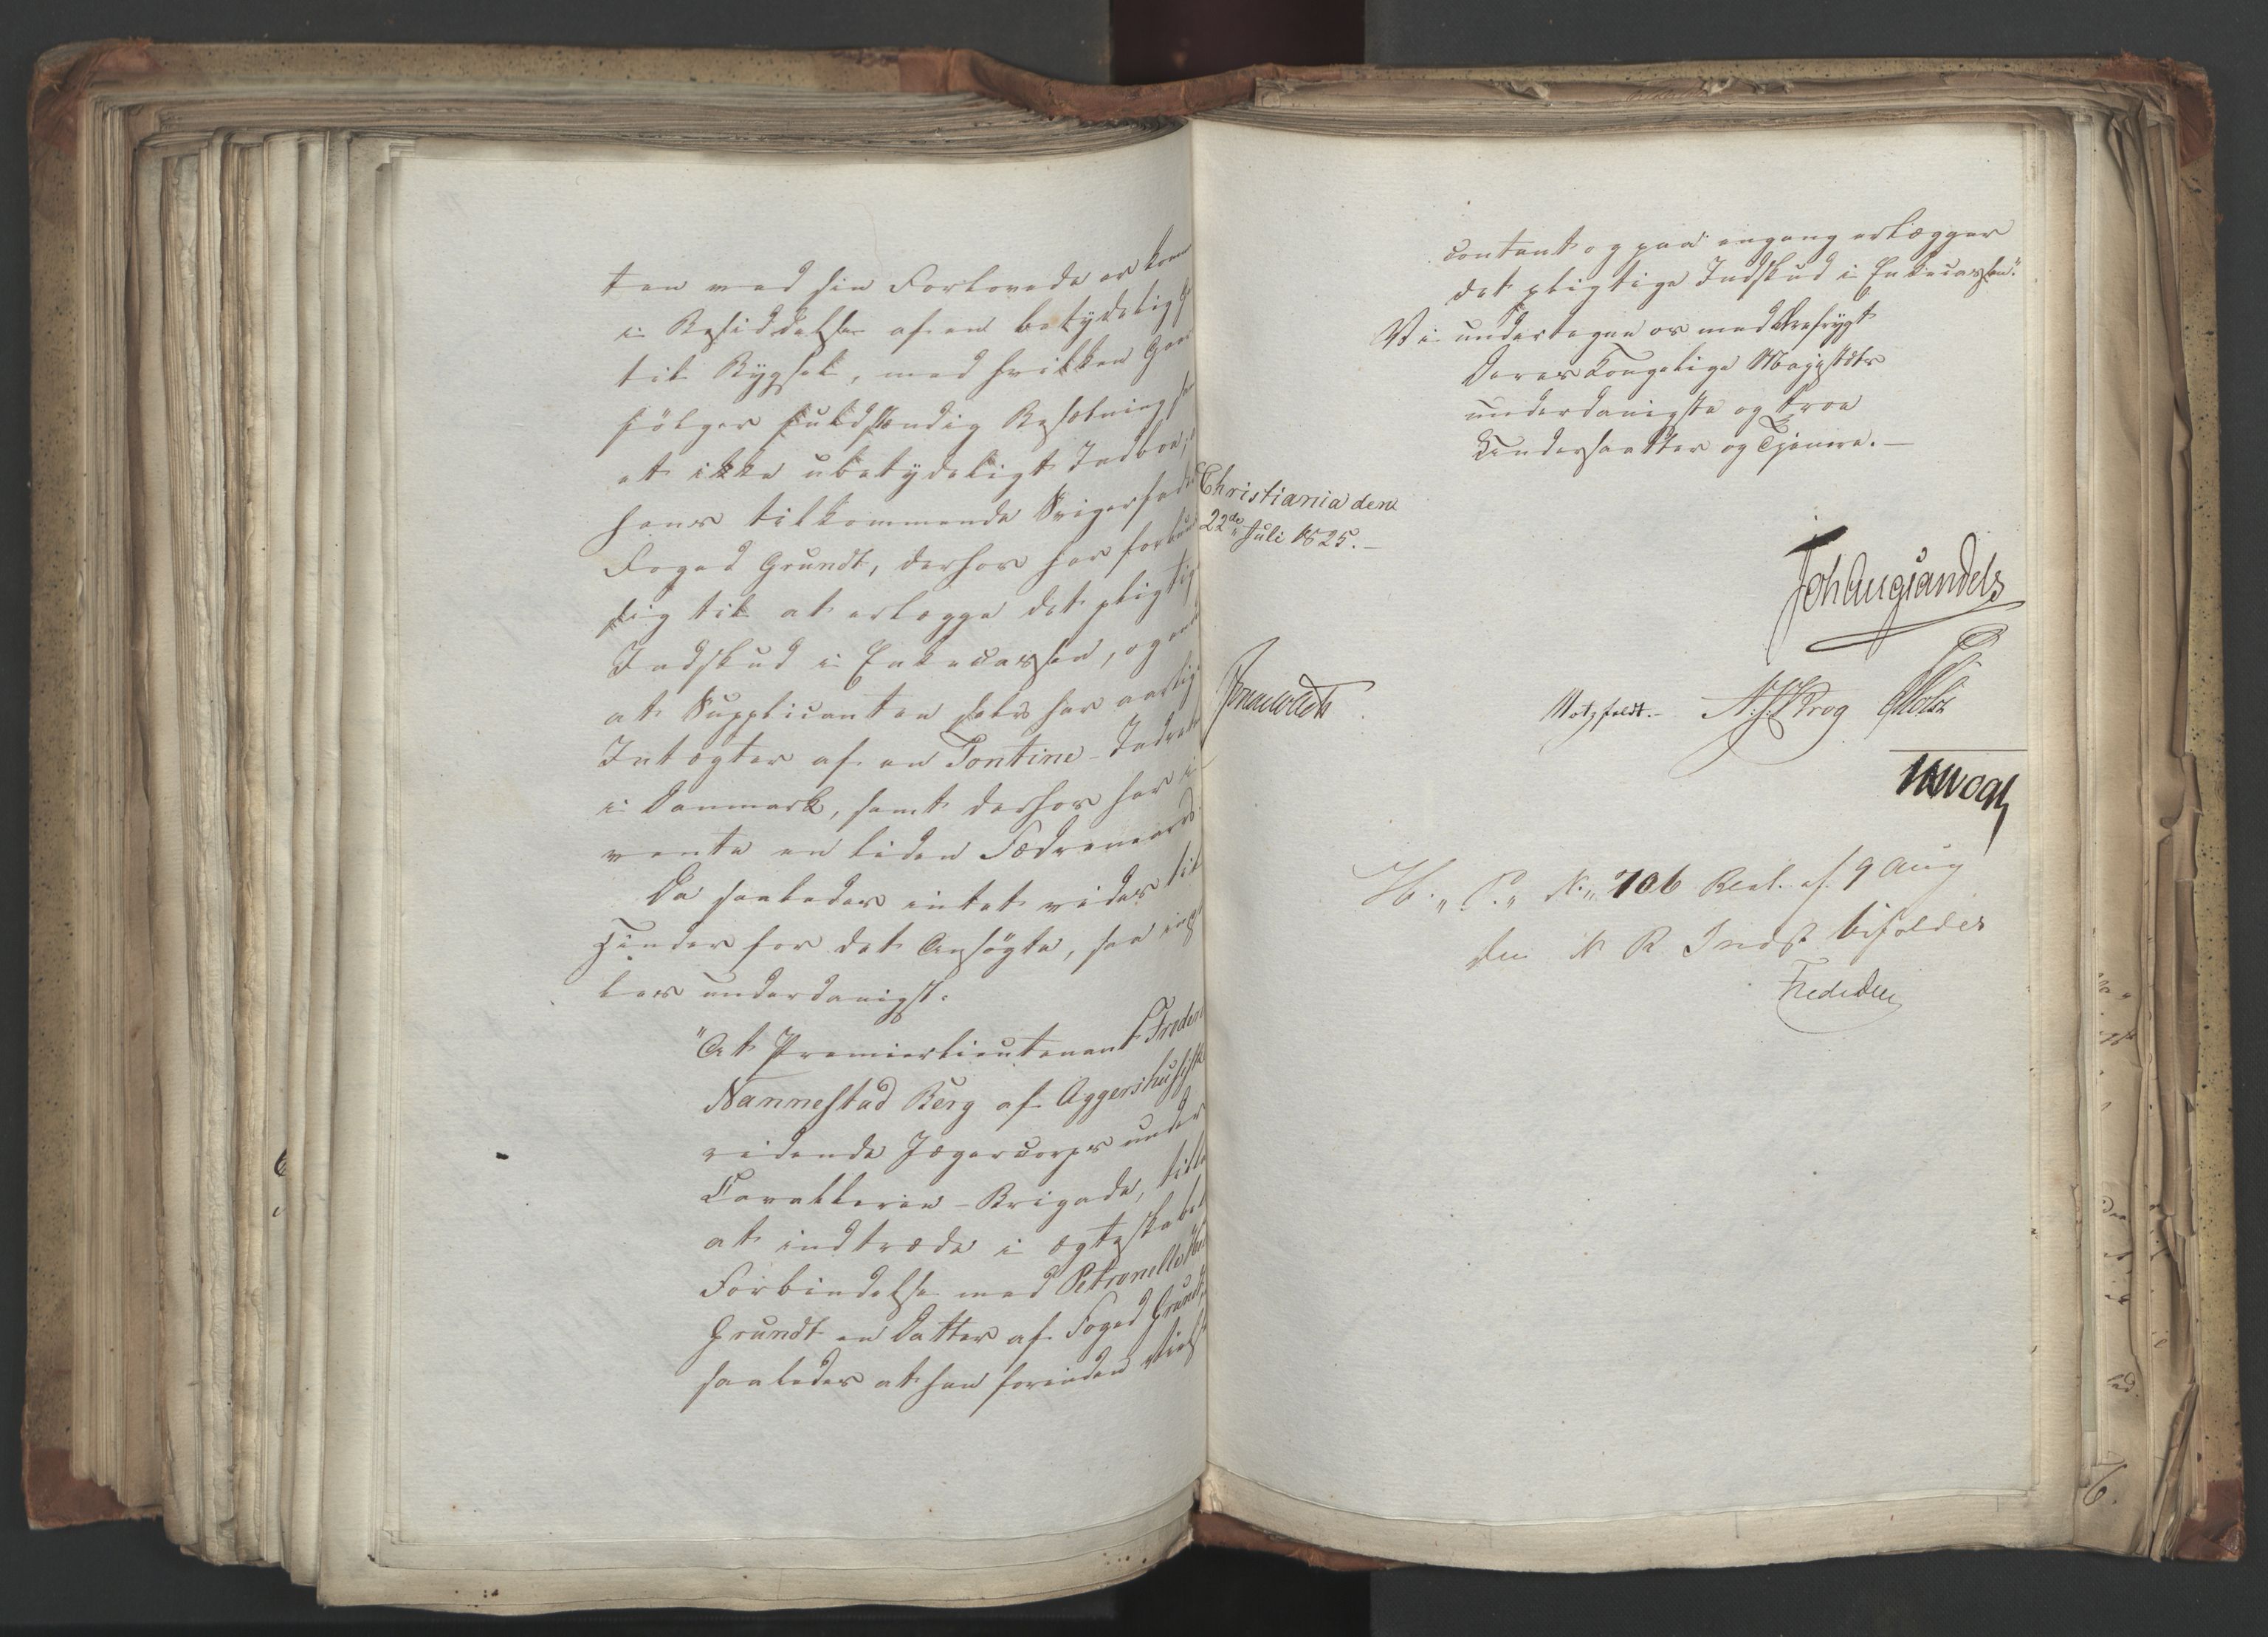 ten med sin Forlovede er kom
i Besiddelse af en betydelig G
til Bygsel, med hvilken Gaar
følger fuldstændig Besætning sa
et ikke ubetydeligt Indboe;
hans tilkommende Svigerfader
Foged Grundt, derhos har forbun
sig til at erlægge det pligtig
Indskud i Enkecassen, og end
at Supplicanten selv har aarlig
Intægter af en Tontine-Indret
i Danmark, samt derhos har i
vente en liden Fædrenearv
Da saaledes intet vides til
Hinder for det Ansøgte, saa inds
les underdanigst:
"At Premierlieutenant Freder
Nannestad Berg af Aggershusiske
ridende Jægercorps under
Cavallerie-Brigade, tilla
at indtræde i ægteskabel
Forbindelse med Petronelle
Grundt en Datter af Foged Grundt,
saaledes at han forinden Viels
contant og paa engang erlægger
det pligtige Indskud i Enkecassen".
Vi undertegne os med Ærefrygt
Deres Kongelige Majestæts
underdanigste og troe
Undersaatter og Tjenere.—
Christiania den
22de Juli 1825.—
Joh Aug Sandels
Motzfeldt.— N:J:Krog Holst
No. 706 Resl. af 9 Aug
Den N R Indst bifaldes